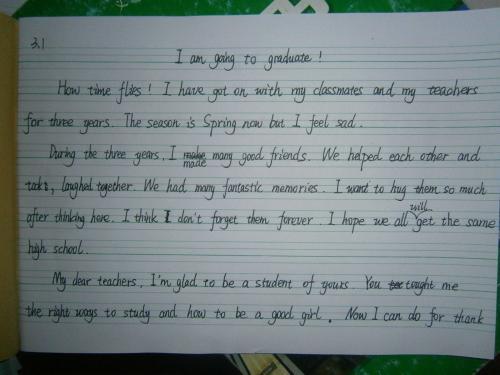 3.1
I am going to graduate!
How time flies! I have got on with my classmates and my teachers
for three years. The season is Spring now but I feel sad.
During the three years, I made many good friends. We helped each other and
talks, laughed together. We had many fantastic memories. I want to hug them so much
after thinking here. I think I don't forget them forever. I hope we all will get the same
high school.
My dear teachers, I'm glad to be a student of yours. You tought me
the right ways to study and how to be a good girl. Now I can do for thank